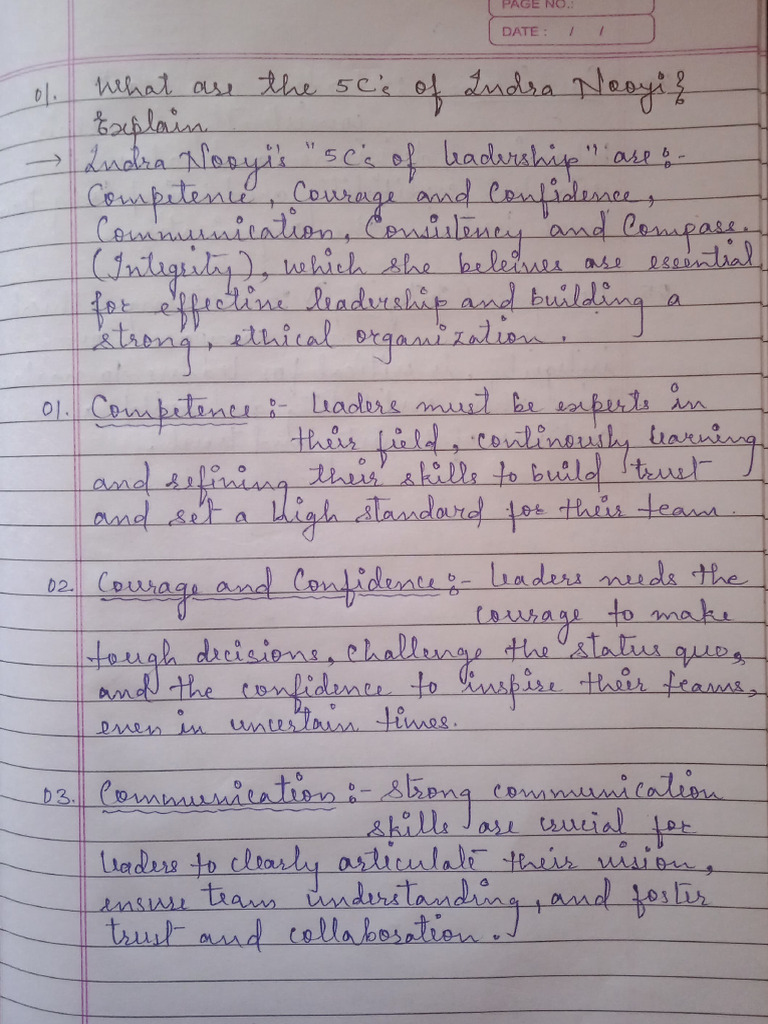 PAGE NO.:
DATE : / /
01. What are the 5C's of Indra Nooyi &
Explain
→ Indra Nooyi's "5C's of leadership" are :-
Competence, Courage and Confidence,
Communication, Consistency and Compass.
(Integrity), which she beleives are essential
for effective leadership and building a
strong, ethical organization.
01. Competence :- Leaders must be experts in
their field, continously learning
and refining their skills to build trust
and set a high standard for their team.
02. Courage and Confidence :- Leaders needs the
courage to make
tough decisions, challenge the status quo,
and the confidence to inspire their teams,
even in uncertain times.
03. Communication :- Strong communication
skills are crucial for
leaders to clearly articulate their vision,
ensure team understanding, and foster
trust and collaboration.